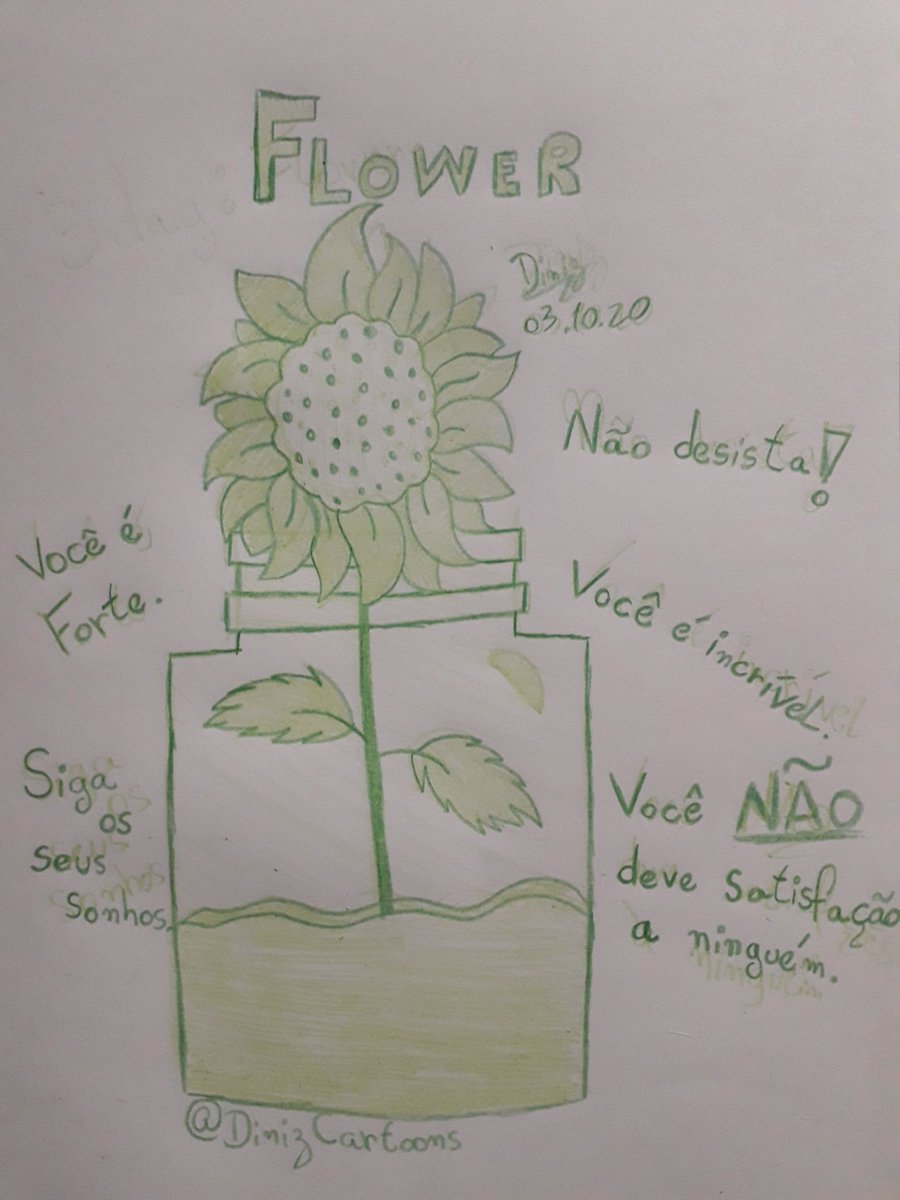 FLOWER
Diniz
03.10.20
Não desista!
Você é
Forte.
Você é incrível.
Siga
os
seus
sonhos.
Você NÃO
deve satisfação
a ninguém.
@DinizCartoons